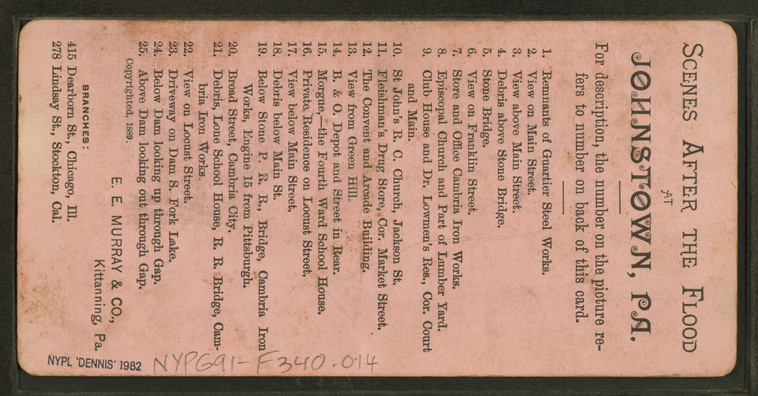 SCENES AFTER THE FLOOD
AT
JOHNSTOWN, PA.
For description, the number on the picture re-
fers to number on back of this card.
1. Remnants of Guartier Steel Works.
2. View on Main Street.
3. View above Main Street.
4. Debris above Stone Bridge.
5. Stone Bridge.
6. View on Franklin Street.
7. Store and Office Cambria Iron Works.
8. Episcopal Church and Part of Lumber Yard.
9. Club House and Dr. Lowmen's Res., Cor. Court
and Main.
10. St John's R. C. Church, Jackson St.
11. Fleishman's Drug Store, Cor. Market Street.
12. The Convent and Arcade Building.
13. View from Green Hill.
14. B. & O. Depot and Street in Rear.
15. Morgue,—the Fourth Ward School House.
16. Private Residence on Locust Street.
17. View below Main Street.
18. Debris below Main St.
19. Below Stone P. R. R., Bridge, Cambria Iron
Works, Engine 15 from Pittsburgh.
20. Broad Street, Cambria City.
21. Debris, Lone School House, R. R. Bridge, Cam-
bria Iron Works.
22. View on Locust Street.
23. Driveway on Dam S. Fork Lake.
24. Below Dam looking up through Gap.
25. Above Dam looking out through Gap.
Copyrighted, 1889.
E. E. MURRAY & CO.,
Kittanning, Pa.
BRANCHES:
415 Dearborn St., Chicago, Ill.
278 Lindsay St., Stockton, Cal.
NYPL 'DENNIS' 1982
NYPG91-F340.014